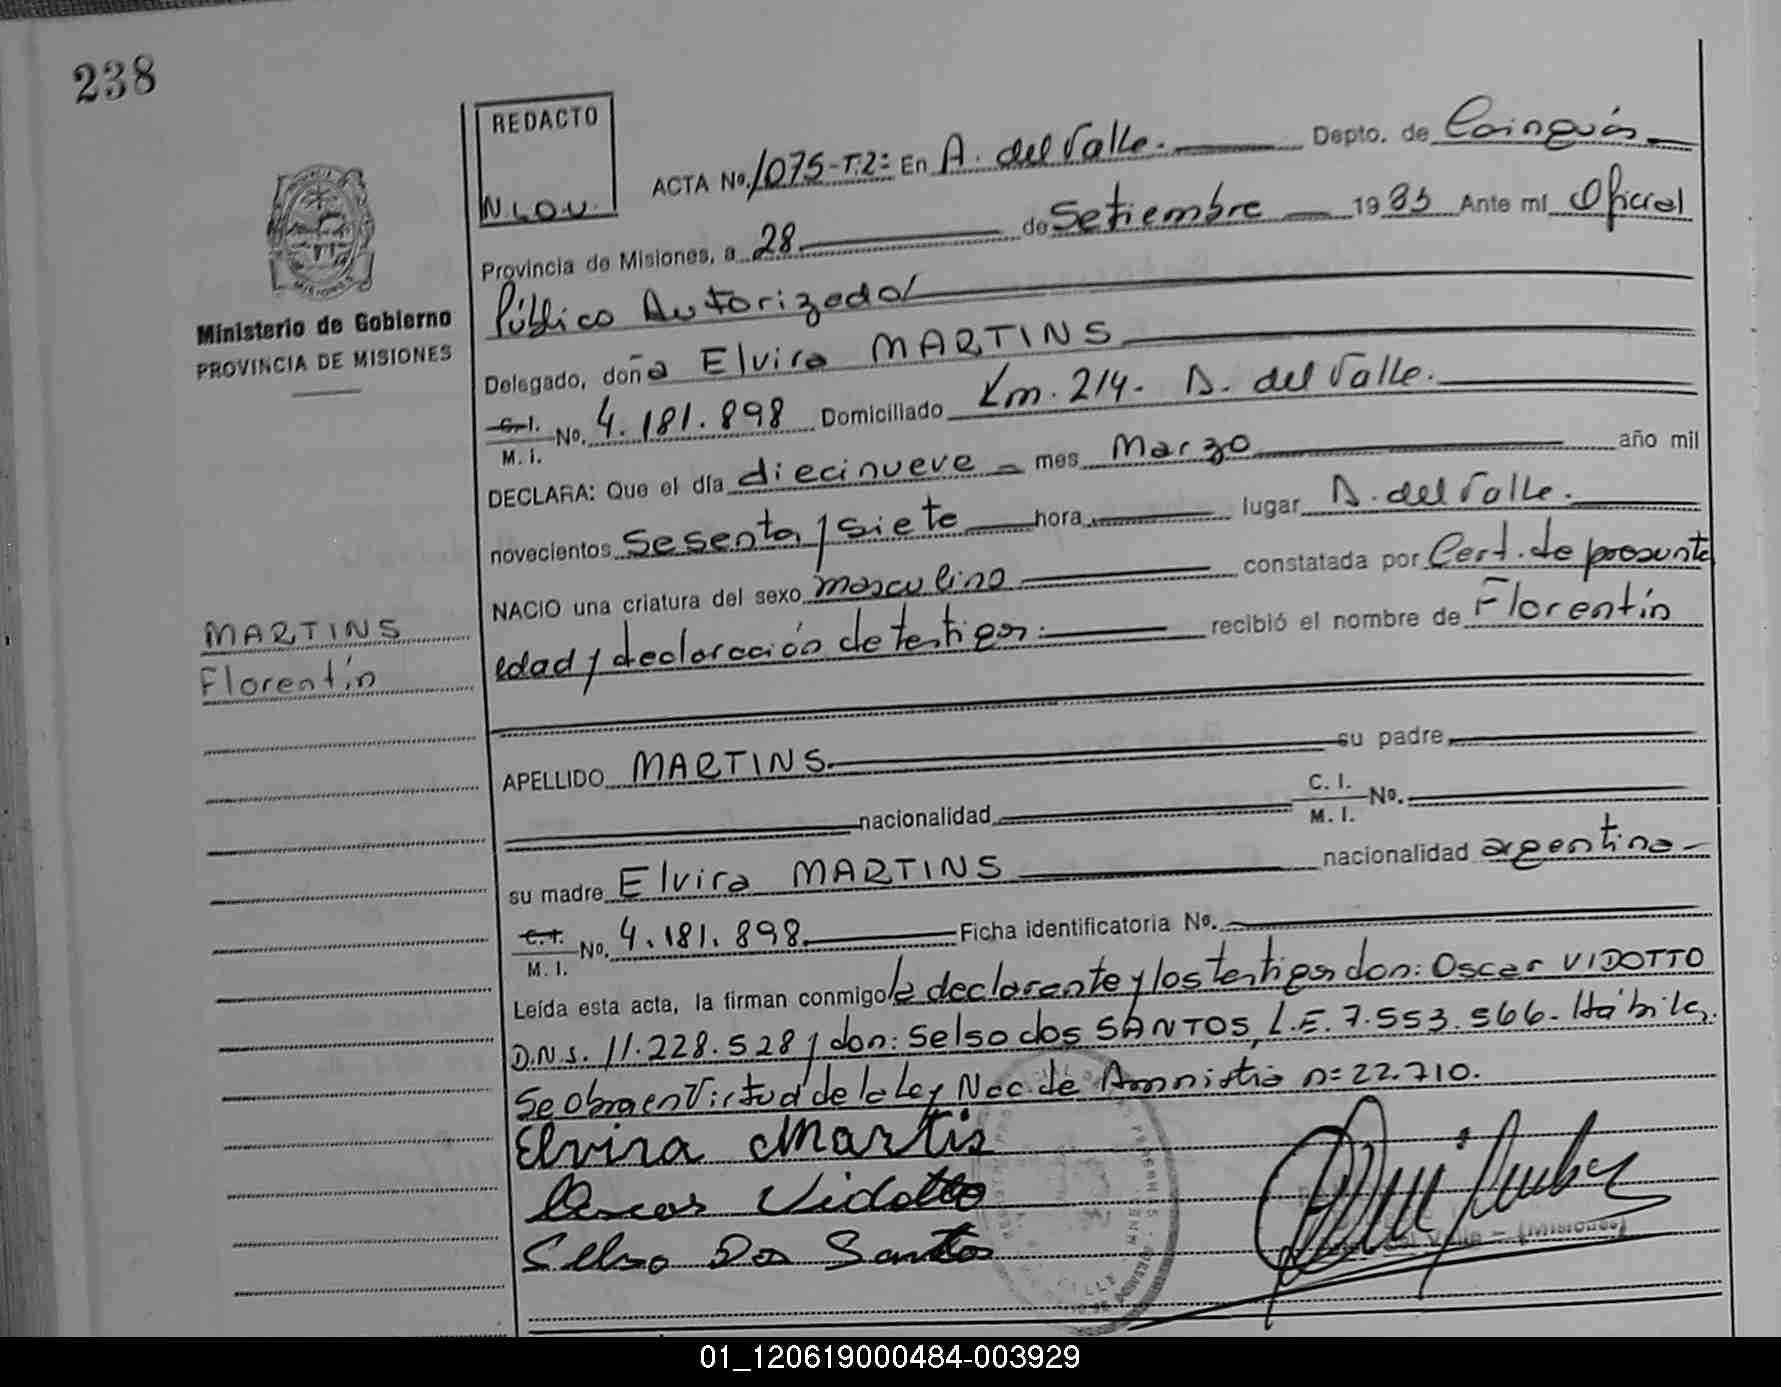 238
REDACTO
N.L.O.U.
ACTA No. 1075-T.2: En A. del Valle. Depto. de Cainguás
Provincia de Misiones, a 28 de Setiembre 1983 Ante mí Oficial
Público Autorizado
Ministerio de Gobierno
PROVINCIA DE MISIONES
Delegado, doña Elvira MARTINS
C. I. M. I. No. 4.181.898 Domiciliado Km. 214- A. del Valle.
DECLARA: Que el día diecinueve mes Marzo año mil
novecientos Sesenta y Siete hora lugar A. del Valle.
NACIO una criatura del sexo masculino constatada por Cert. de presunta
edad y declaración de testigos: recibió el nombre de Florentín
MARTINS
Florentín
APELLIDO MARTINS. su padre
nacionalidad C. I. M. I. No.
su madre Elvira MARTINS nacionalidad argentina
C. I. M. I. No. 4.181.898. Ficha identificatoria No.
Leída esta acta, la firman conmigo la declarante y los testigos don: Oscar VIDOTTO
D.N.I. 11.228.528 y don: Selso dos SANTOS, L.E. 7.553.566- Hábiles.
Se obra en Virtud de la Ley Nac. de Amnistía n= 22.710.
Elvira Martis
Oscar Vidotto
Selso Dos Santos
01_120619000484-003929